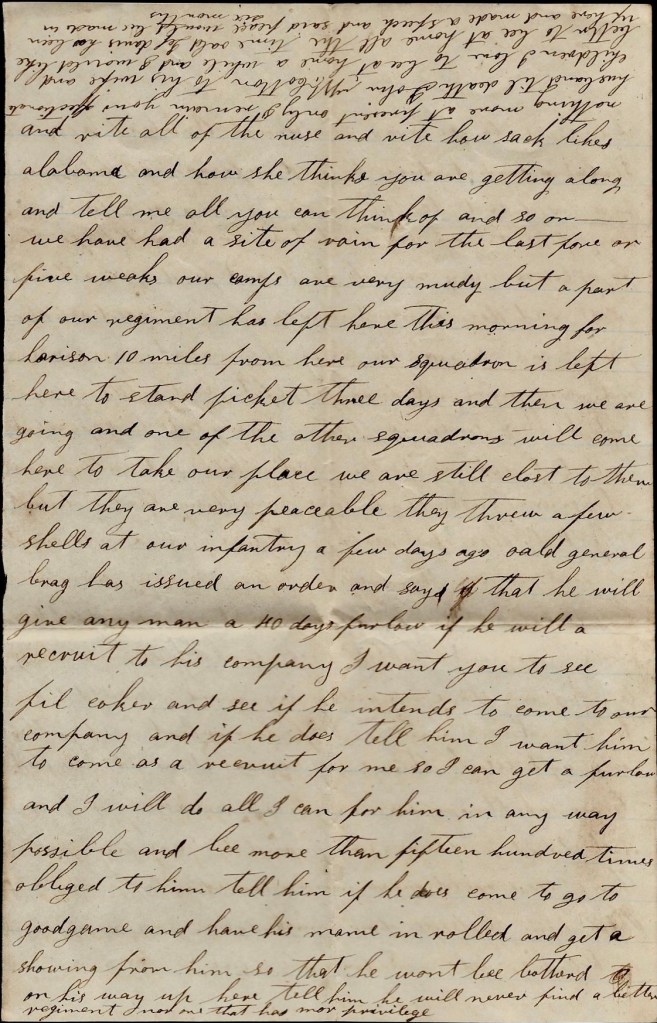 and rite all of the nuse and rite how sack likes
alabama and how she thinks you are getting along
and tell me all you can think of and so on—
we have had a site of rain for the last fore or
five weaks our camps are very mudy but a part
of our regiment has left here this morning for
harison 10 miles from here our squadron is left
here to stand picket three days and then we are
going and one of the other squadrons will come
here to take our place we are still clost to them
but they are very peaceable they threw a few
shells at our infantry a few days ago oald general
brag has issued an order and sayd that he will
give any man a 40 days furlow if he will a
recruit to his company I want you to see
fil coker and see if he intends to come to our
company and if he does tell him I want him
to come as a recruit for me so I can get a furlow
and I will do all I can for him in any way
possible and bee more than fifteen hundred times
obliged to him tell him if he does come to go to
goodgame and have his name in rolled and get a
showing from him so that he wont bee bothard
on his way up here tell him he will never find a better
regiment nor one that has mor privilege
nothing more at present only I remain your affectionate
husband til death John W Cotton to his wife and
children I love to be at home a while and I would like
better to bee at home all the time oald Jef davis has been
up here and made a speach and said peace would bee made in
six months